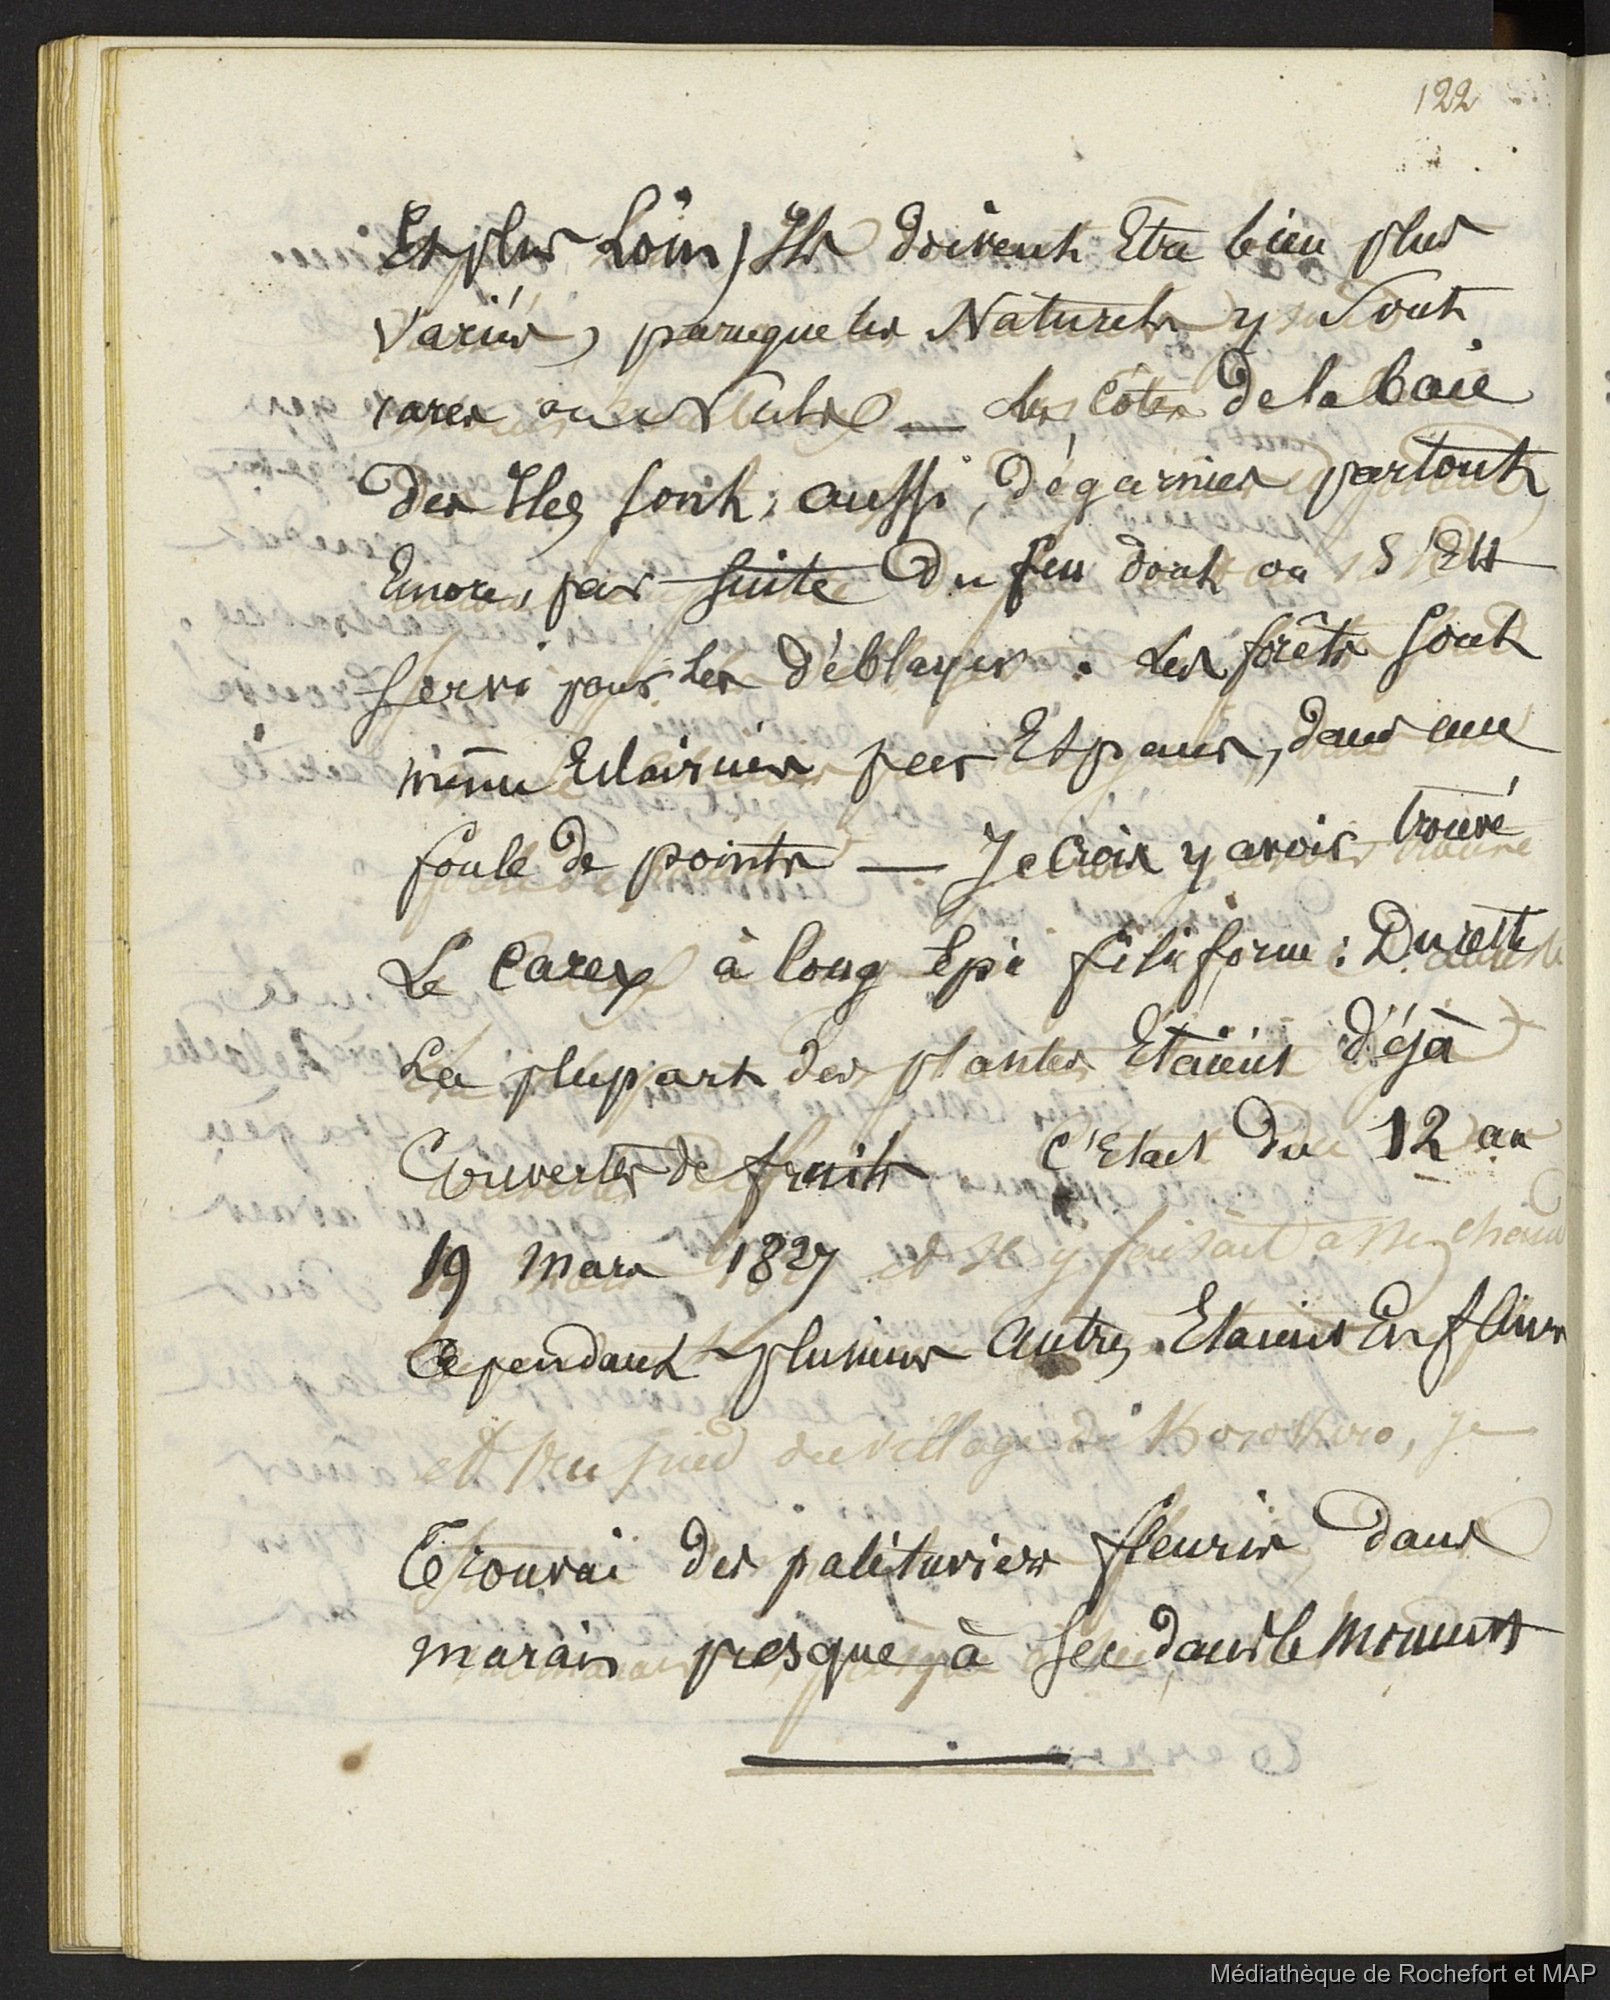 122
Et plus Loin) Ils doivent Etre bien plus
variés, parceque les Naturels y Sont
rares ou Nuls — les Côtes de la baie
des Iles sont, aussi, dégarnies partout
Encore, par suite du feu dont on S'Est
servi pour les déblayer. Les forêts sont
même Eclaircies par Espaces, dans une
foule de points — Je Crois y avois trouvé
Le Carex à long Epi filiforme : Du reste
La plupart des plantes Etaient déjà
Couvertes de fruits C'Etait du 12 au
19 Mars 1827 et Il y faisait assez chaud
Cependant plusieurs autres Etaient En fleurs
et au pied du village de KoroKoro, je
Trouvai des palétuviers fleuris dans
marais presque à sec dans le moment
Médiathèque de Rochefort et MAP